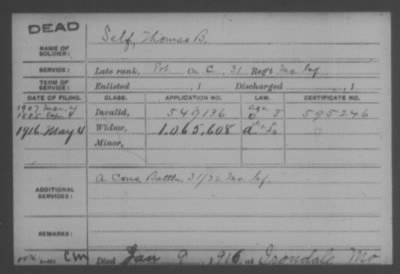 DEAD
NAME OF SOLDIER: Self, Thomas B.
SERVICE: Late rank, Pvt. Co. C, 31 Reg't Mo. Inf.
TERM OF SERVICE: Enlisted , 1 Discharged , 1
DATE OF FILING. CLASS. APPLICATION NO. LAW. CERTIFICATE NO.
1907 Mar. 4
Invalid, 549136 595246
1916 May 4 Widow, 1,065,608
Minor,
ADDITIONAL SERVICES: A Cons. Battn. 31/32 Mo. Inf.
REMARKS:
Died Jan 9, 1916, at Irondale Mo